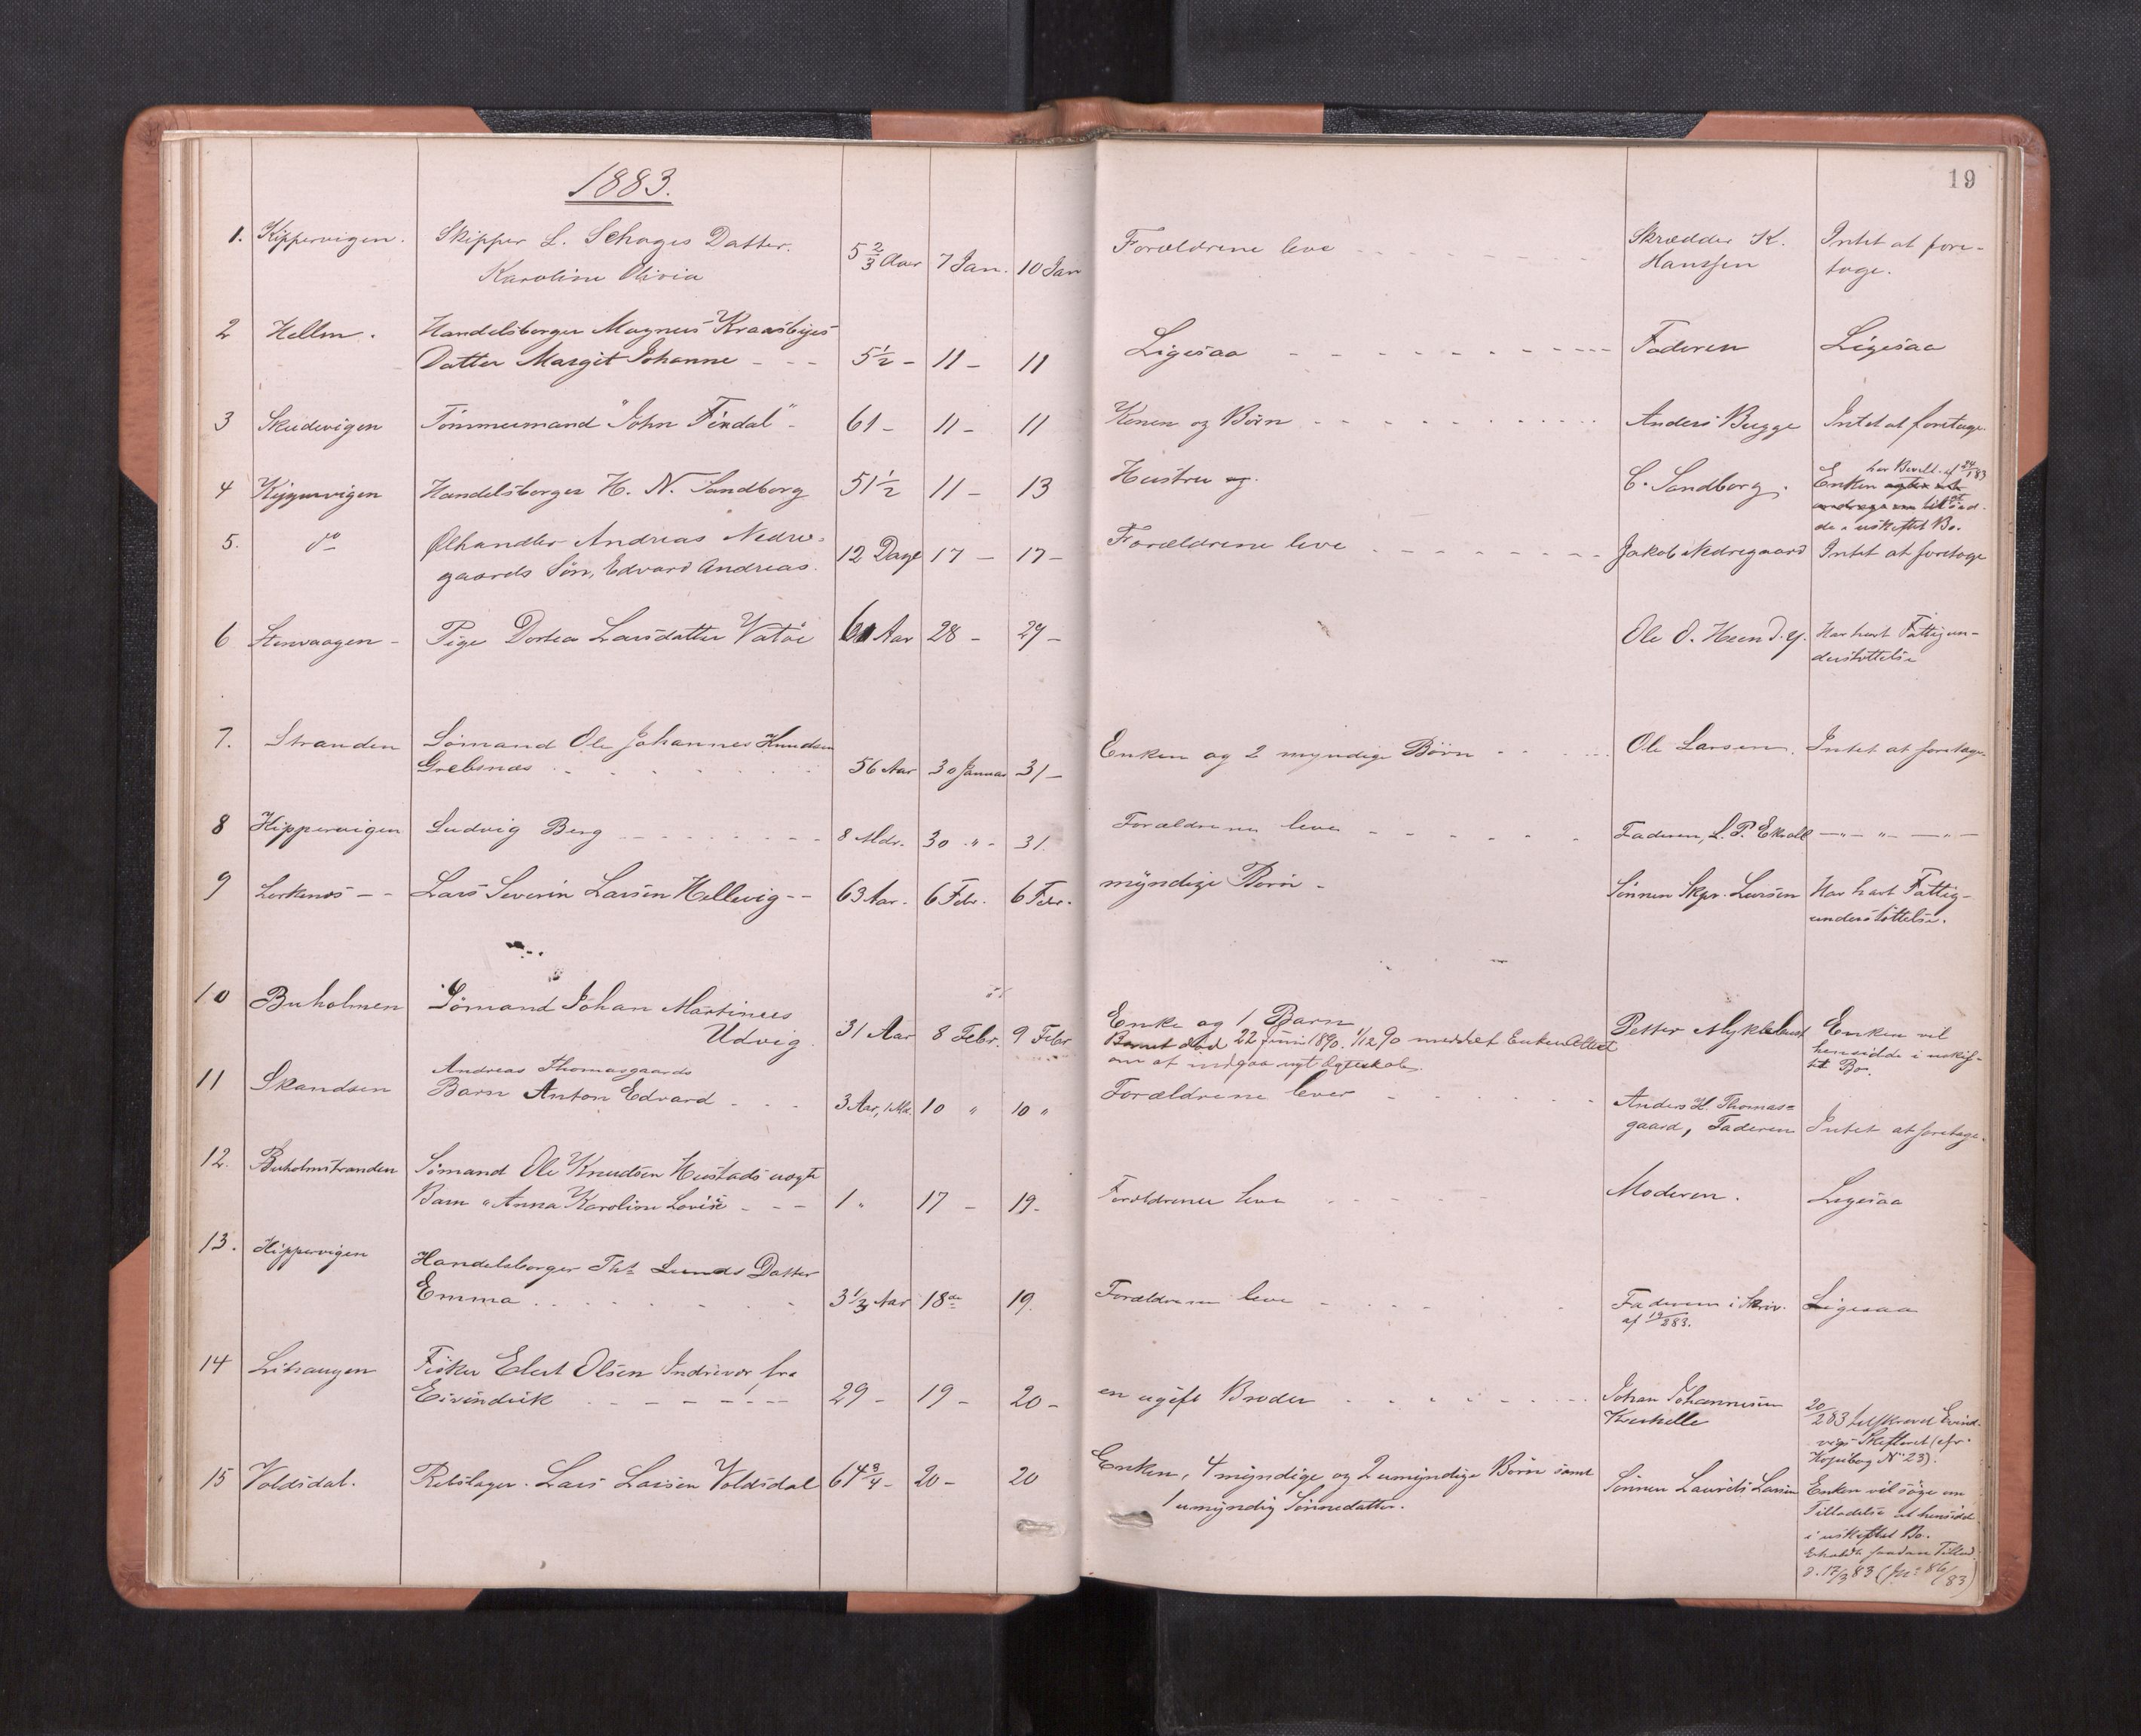 1883.
19
1. Kippervigen. Skipper L. Schages Datter.
Karoline Olivia 5 2/3 Aar 7 Jan. 10 Jan
Forældrene leve
Skrædder K.
Hanssen
Intet at fore-
tage.
2 Hellen. Handelsborger Magnus Kraasbyes
Datter Margit Johanne - - - 5½ - 11 - 11
Ligesaa
Faderen
Ligesaa
3 Skudevigen Tömmermand "John Findal" - 61 - 11 - 11
Konen og Börn
Anders Bugge
Intet at foretage.
4 Kippervigen Handelsborger H. N. Sandborg 51½ 11 - 13
Hustru og.
C. Sandborg.
har Bevill. af 24/1 83
Enken
de i uskiftet Bo.
5. do Ølhandler Andreas Nedre-
gaards Sön, Edvard Andreas. 12 Dage 17 - 17 -
Forældrene leve
Jakob Nedregaard
Intet at foretage
6 Stenvaagen - Pige Dortea Larsdatter Vatöe 61 Aar 28 - 29 -
Ole O. Heen d. y.
Har havt Fattigun-
derstöttelse
7. Stranden Sömand Ole Johannes Knudsen
Grebsnæs 56 Aar 30 Januar 31 -
Enken og 2 myndige Börn
Ole Larsen.
Intet at foretage
8 Kippervigen Ludvig Berg 8 Mdr. 30 " - 31.
Forældrene leve
Faderen, L. P. Ekroll
- " - " - " -
9 Lerkenes - - Lars Severin Larsen Hellevig - - 63 Aar. 6 Febr. 6 Febr.
myndige Börn -
Sönnen Skpr. Larsen
Har havt Fattig-
understöttelse.
10 Buholmen Sömand Johan Martinus
Udvig. 31 Aar 8 Febr. 9 Febr
Enke og 1 Barn
Barnet död 22 Juni 1890. 1/12 90 meddelt Enken Attest
om at indgaa nyt Ægteskab.
Petter Myklebust
Enken vil
hensidde i uskif-
tet Bo.
11 Skandsen Andreas Thomasgaards
Barn Anton Edvard - - - 3 Aar, 1 Md. 10 " 10 "
Forældrene lever
Anders H. Thomas=
gaard, Faderen
Intet at foretage.
12. Buholmstranden Sömand Ole Knudsen Hustads uægte
Barn "Anna Karoline Lovise - - - 1 " 17 - 19 -
Forældrene leve
Moderen.
Ligesaa
13. Kippervigen Handelsborger Ths Lunds Datter
Emma 3 1/3 Aar 18de 19.
Forældrene leve
Faderen i Skriv.
af 19/2 83.
Ligesaa
14 Lihaugen Fisker Elert Olsen Indrevær fra
Eivindvik 29 - 19 - 20 -
en ugift Broder
Johan Johannesen
20/2 83 tilskrevet Evind-
vigs Skifteret (cfr.
Kopibog No 23).
15 Voldsdal. Rebslager. Lars Larsen Voldsdal 64 3/4 - 20 - 20
Enken, 4 myndige og 2 umyndige Börn samt
1 umyndig Sönnedatter.
Sönnen Laurits Larsen
Enken vil söge om
Tilladelse at hensidde
i uskiftet Bo.
Erholdt saadan Tillad.
d. 17/3 83 (Jn: 86/83)